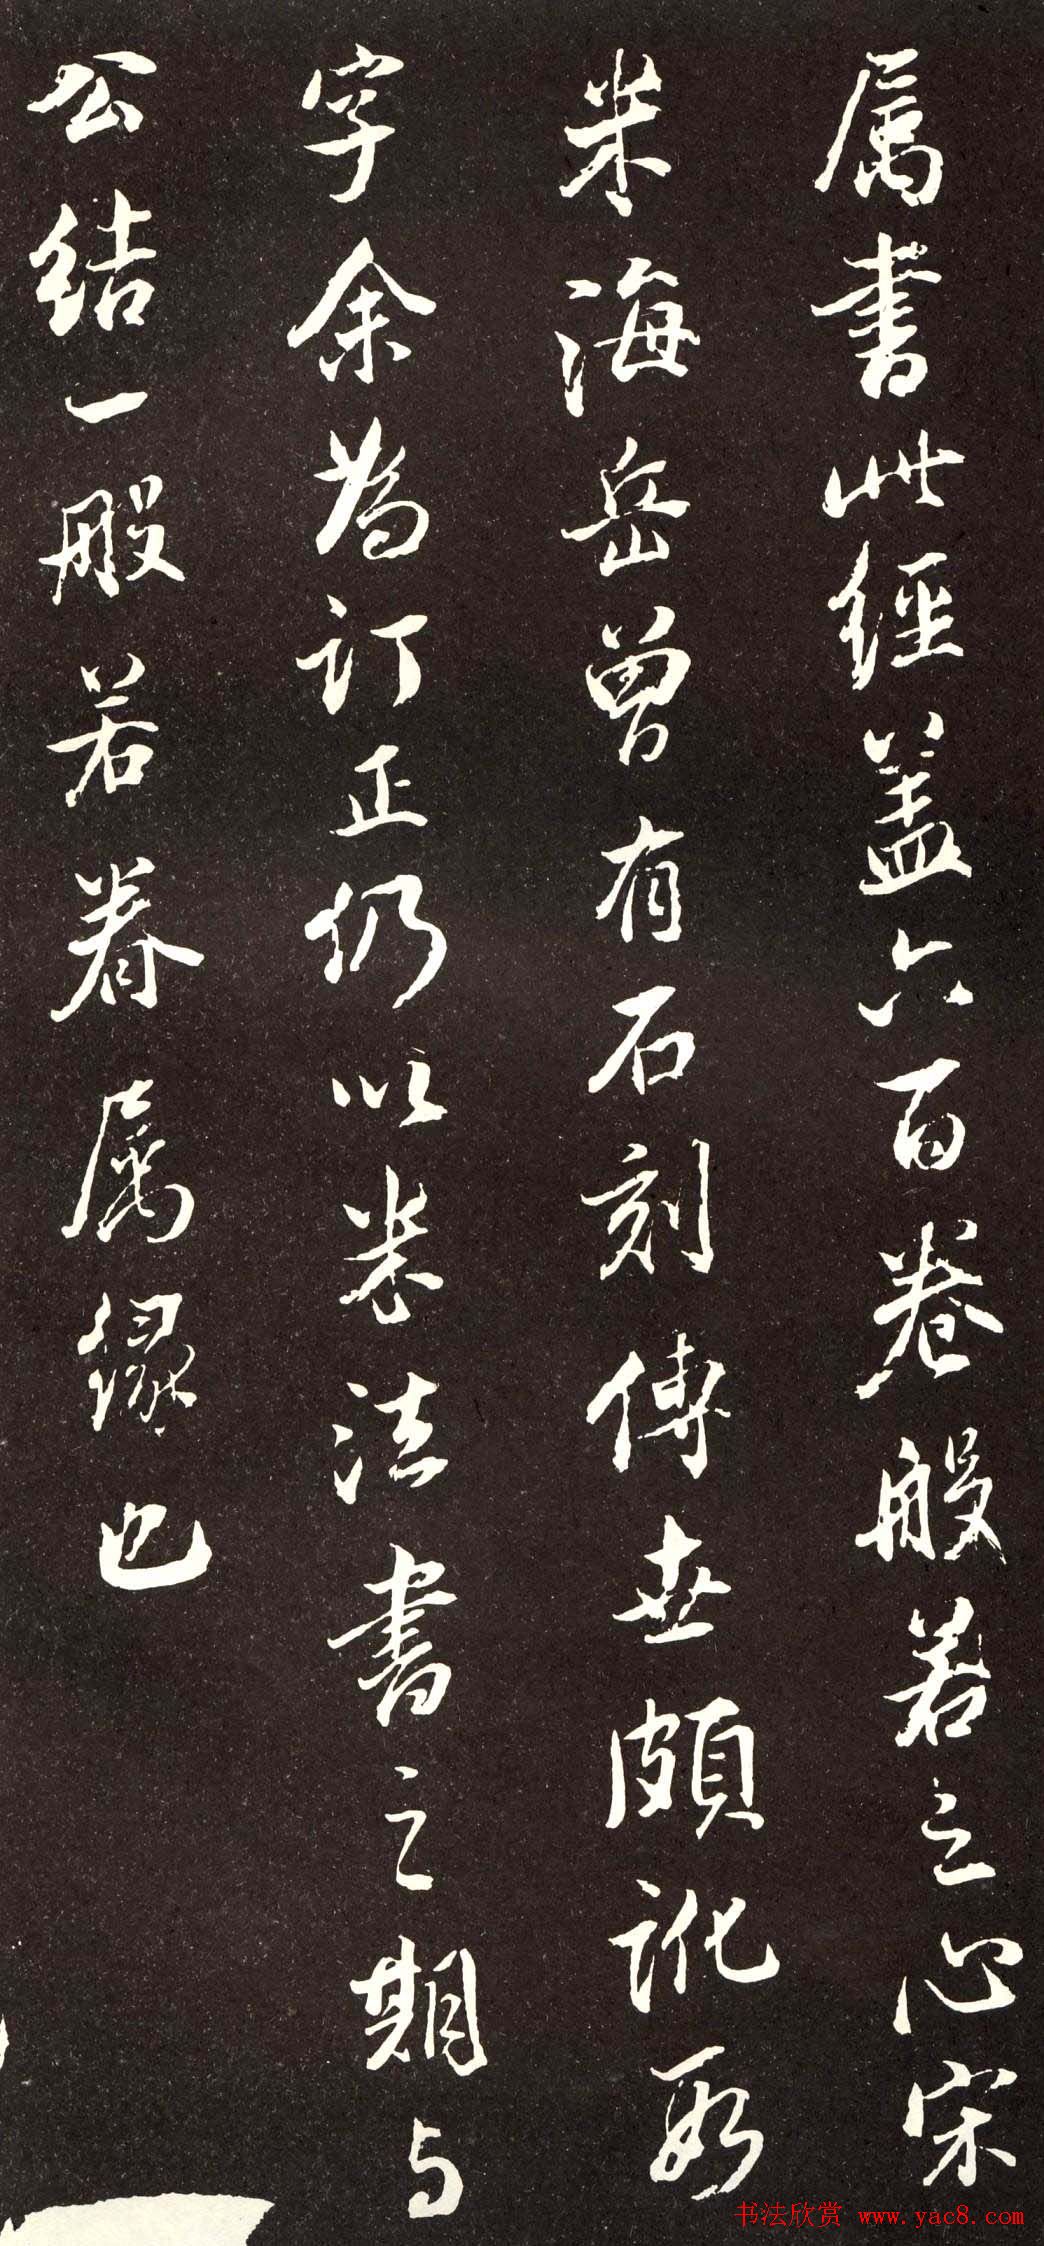 属書此經蓋六百卷般若之心宋
米海岳曾有石刻傳世頗訛
字余為訂正仍以米法書之期与
公結一般若眷属緣也
书法欣赏 www.yac8.com